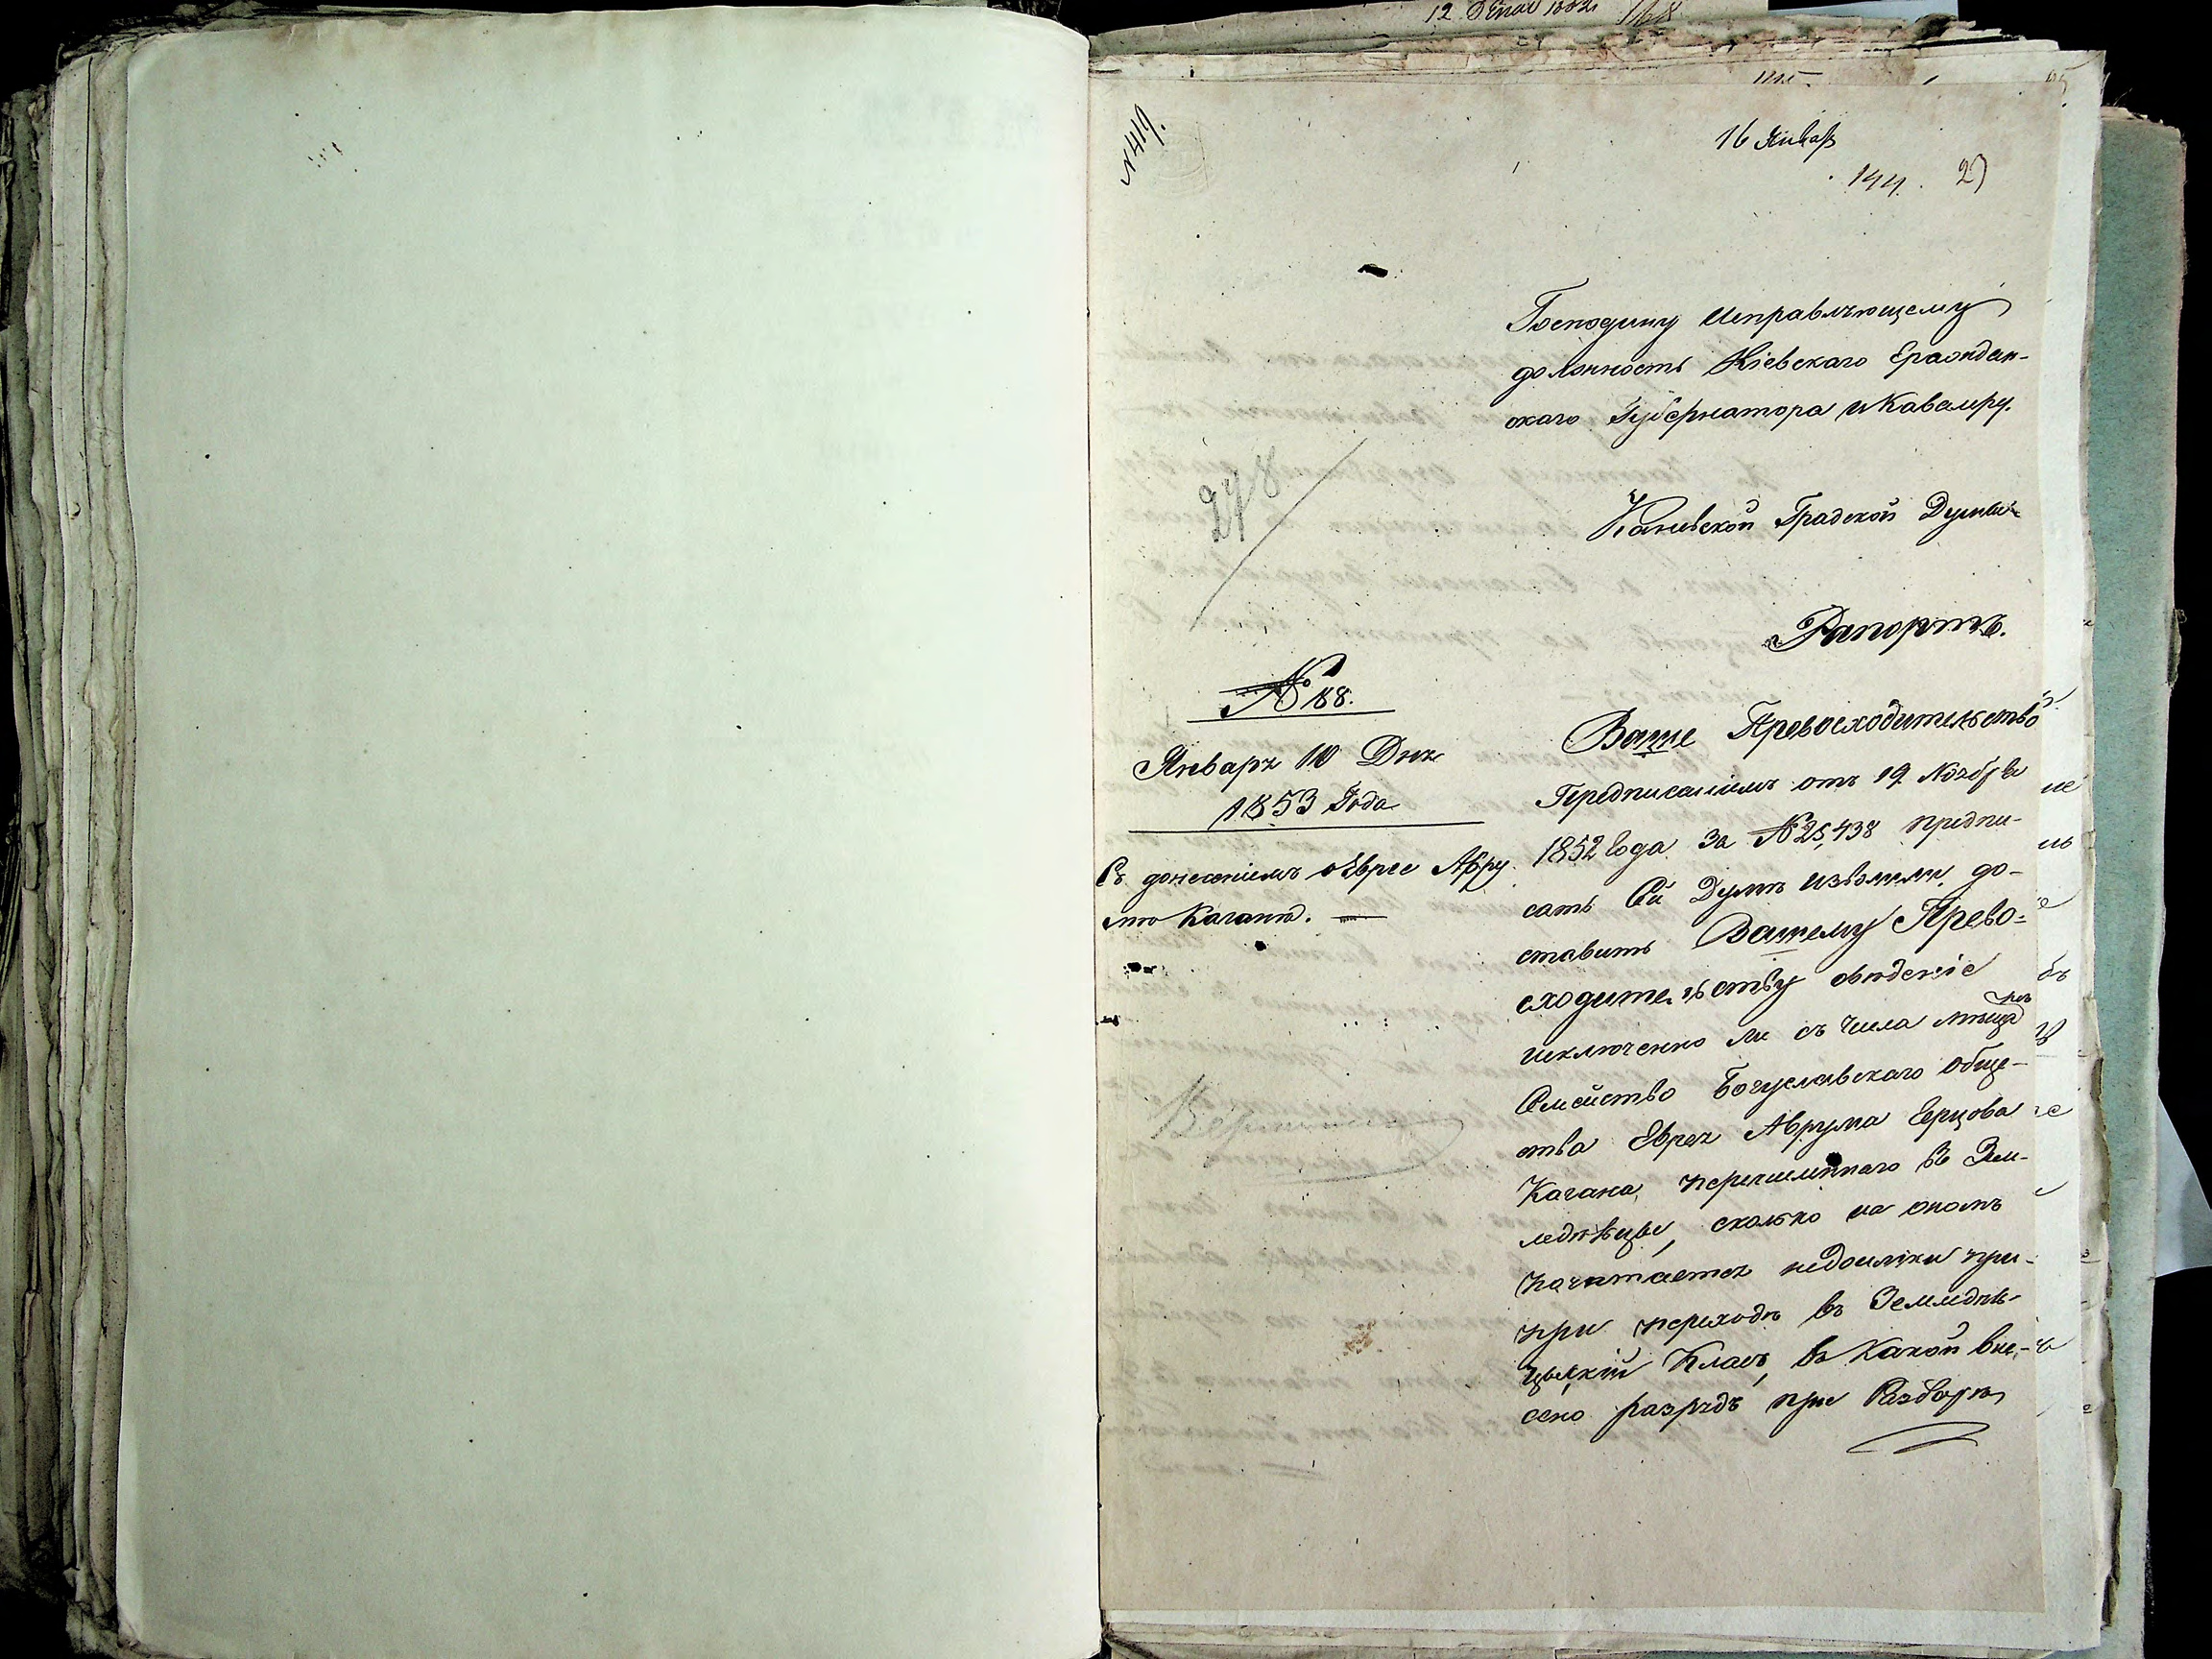 N 419.
16 Январ
144. 27
Господину Исправляющему
должность Кіевскаго Граждан-
скаго Губернатора и Кавалеру.
278
Каневской Градской Думы
Рапортъ.
№ 188.
Января 10 Дня
1853 Года
Съ донесеніемъ о Еврее Авру
мѣ Каганѣ. —
Ваше Превосходительство
Предписаніемъ отъ 19 Ноября
1852 Года за № 25,438 предпи-
сать Сей Думѣ изволили до-
ставить Вашему Прево-
сходительству свѣденіе
исключенно ли съ числа мѣща
Семейство Богуславскаго обще-
ства Еврея Аврума Герцова
Кагана, перечисленнаго въ Зем-
ледѣльцы, сколько на ономъ
почитается недоимки при-
при переходѣ въ Земледѣль-
ческій Класъ, въ какой вне-
сено разрядъ при Разборѣ